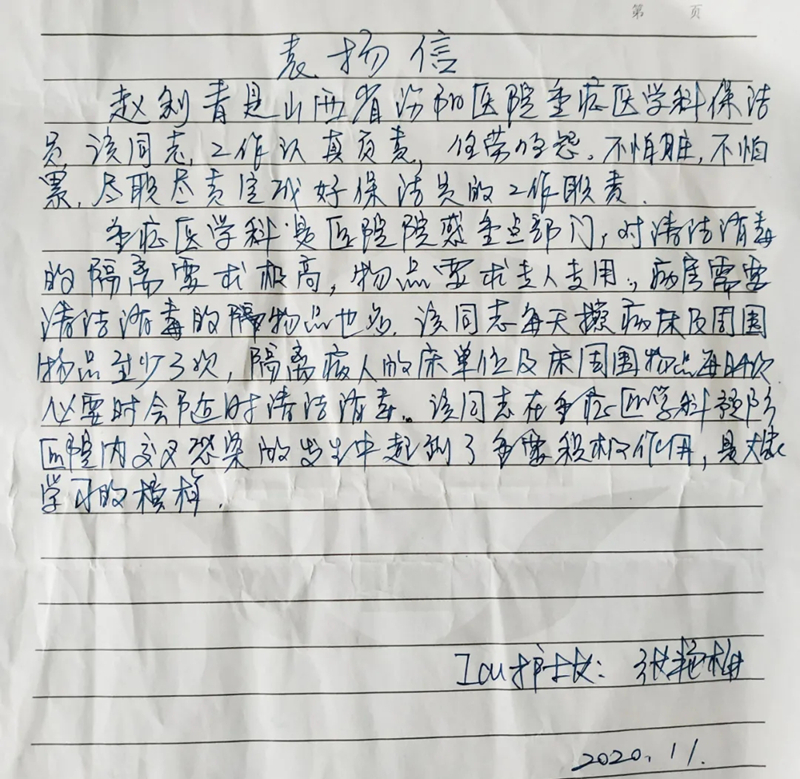 第 页
表扬信
赵 青是山西省汾阳医院重症医学科保洁
员,该同志,工作认真负责,任劳任怨。不怕脏,不怕
累,尽职尽责完成好保洁员的工作职责.
重症医学科是医院院感重点部门,对清洁消毒
的隔离要求极高,物品要求专人专用.,病房需要
清洁消毒的 物品也多.该同志每天擦病床及周围
物品至少3次,隔离病人的床单位及床周围物品每 次
必要时会随时清洁消毒。该同志在重症医学科预防
医院内交叉感染的发生中起到了重要积极作用,是大家
学习的榜样.
ICU护士长:张艳梅
2020.11.